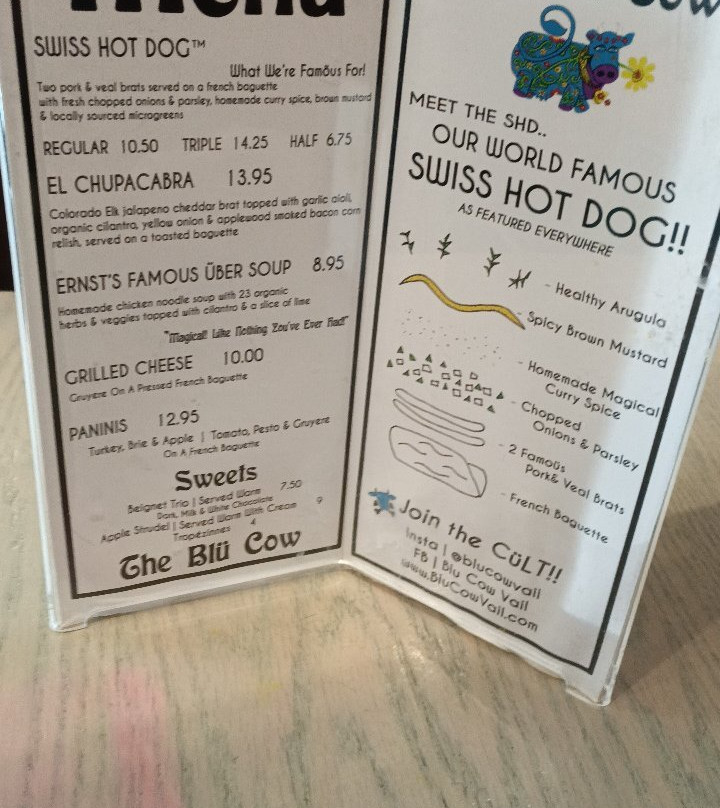 Menu
SWISS HOT DOG™
What We're Famöus For!
Two pork & veal brats served on a french baguette
with fresh chopped onions & parsley, homemade curry spice, brown mustard
& locally sourced microgreens
REGULAR 10.50 TRIPLE 14.25 HALF 6.75
EL CHUPACABRA 13.95
Colorado Elk jalapeno cheddar brat topped with garlic aioli,
organic cilantro, yellow onion & applewood smoked bacon corn
relish, served on a toasted baguette
ERNST'S FAMOUS ÜBER SOUP 8.95
Homemade chicken noodle soup with 23 organic
herbs & veggies topped with cilantro & a slice of lime
"Magical! Like Nothing You've Ever Had"
GRILLED CHEESE 10.00
Gruyere On A Pressed French Baguette
PANINIS 12.95
Turkey, Brie & Apple | Tomato, Pesto & Gruyere
On A French Baguette
Sweets
Beignet Trio | Served Warm 7.50
Dark, Milk & White Chocolate
Apple Strudel | Served Warm With Cream 9
Tropézinnes 4
The Blü Cow
Cow
MEET THE SHD..
OUR WORLD FAMOUS
SWISS HOT DOG!!
AS FEATURED EVERYWHERE
- Healthy Arugula
- Spicy Brown Mustard
- Homemade Magical
Curry Spice
- Chopped
Onions & Parsley
- 2 Famoüs
Pork& Veal Brats
- French Baguette
Join the CüLT!!
Insta | @blucowvail
FB | Blu Cow Vail
www.BluCowVail.com